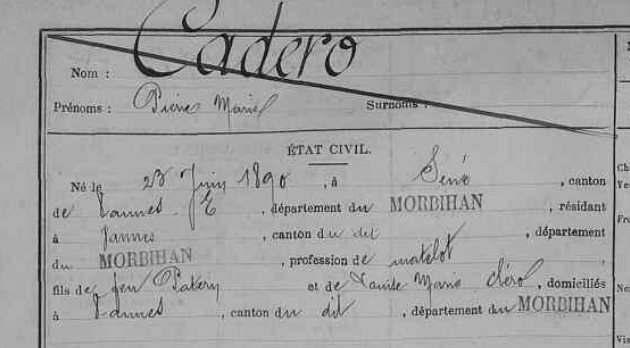 Cadero
Nom :
Prénoms : Pierre Marie Surnoms :
ÉTAT CIVIL.
Né le 23 Juin 1890, à Séné, canton
de Vannes E, département du MORBIHAN, résidant
à Vannes, canton du dit, département
du MORBIHAN, profession de matelot,
fils de feu et de Marie, domiciliés
à Vannes, canton du dit, département du MORBIHAN